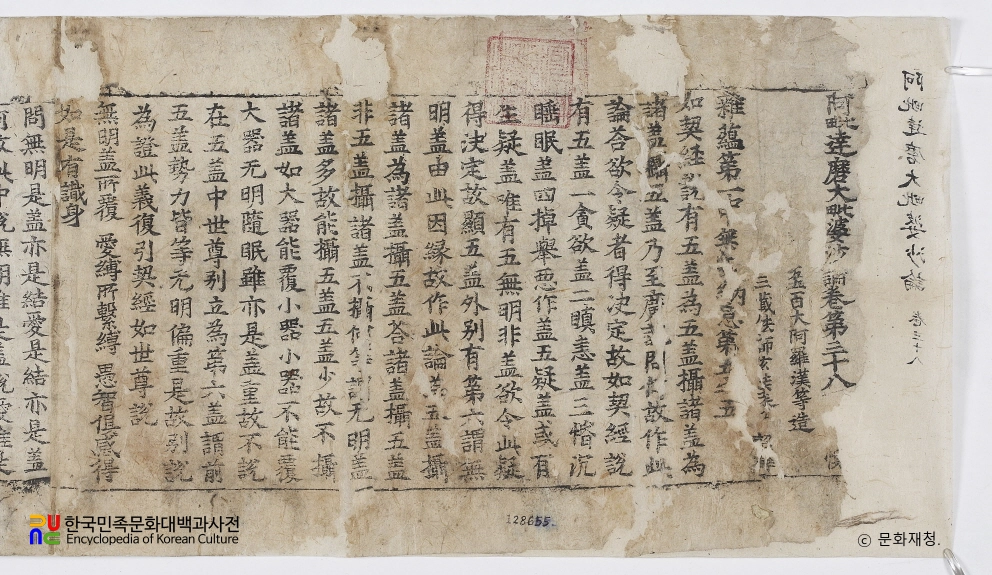 阿毗達磨大毗婆沙論 卷三十八
阿毗達磨大毗婆沙論卷第三十八
五百大阿羅漢等造
三藏法師玄奘奉 詔譯
雜蘊第一中無 納息第五之五
如契經說有五盖為五盖攝諸盖為
諸盖攝五盖乃至廣說問何故作此
論荅欲令疑者得决定故如契經說
有五盖一貪欲盖二瞋恚盖三惛沉
睡眠盖四掉舉惡作盖五疑盖或有
生疑盖唯有五無明非盖欲令此疑
得决定故顯五盖外别有第六謂無
明盖由此因緣故作此論為五盖攝
諸盖為諸盖攝五盖荅諸盖攝五盖
非五盖攝諸盖不攝何等謂无明盖
諸盖多故能攝五盖五盖少故不攝
諸盖如大器能覆小器小器不能覆
大器无明隨眠雖亦是盖重故不說
在五盖中世尊别立為第六盖謂前
五盖勢力皆等无明偏重是故别說
為證此義復引契經如世尊說
無明盖所覆 愛縛所繫縛 愚智俱感得
如是有識身
問無明是盖亦是結愛是結亦是盖
128655.
한국민족문화대백과사전
Encyclopedia of Korean Culture
ⓒ 문화재청.